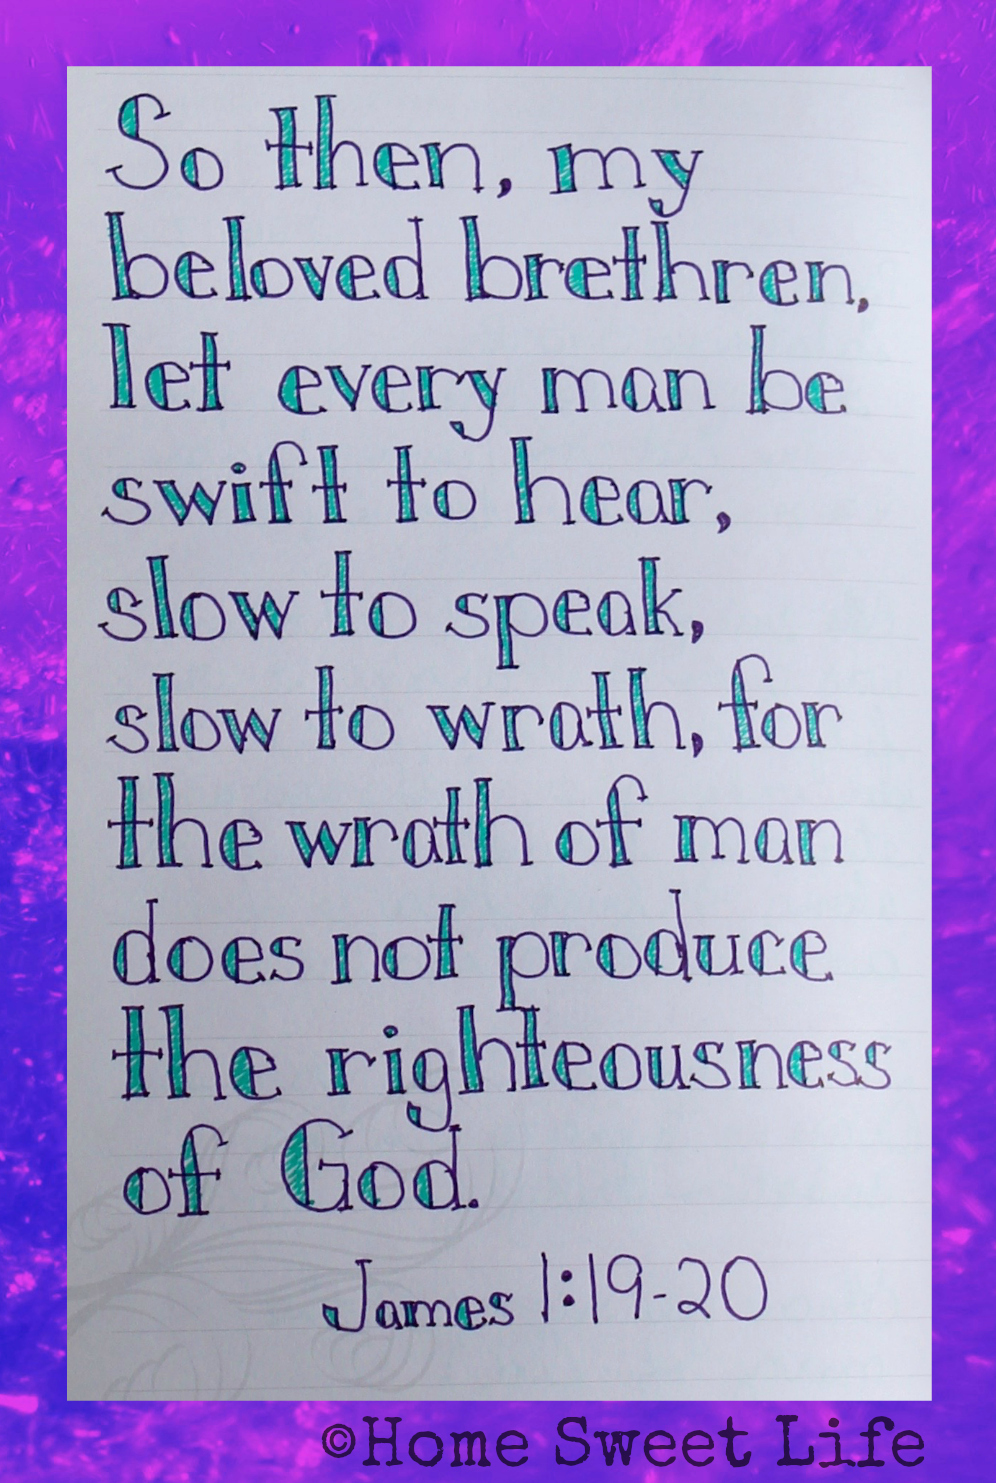 So then, my
beloved brethren,
let every man be
swift to hear,
slow to speak,
slow to wrath, for
the wrath of man
does not produce
the righteousness
of God.
James 1:19-20
©Home Sweet Life